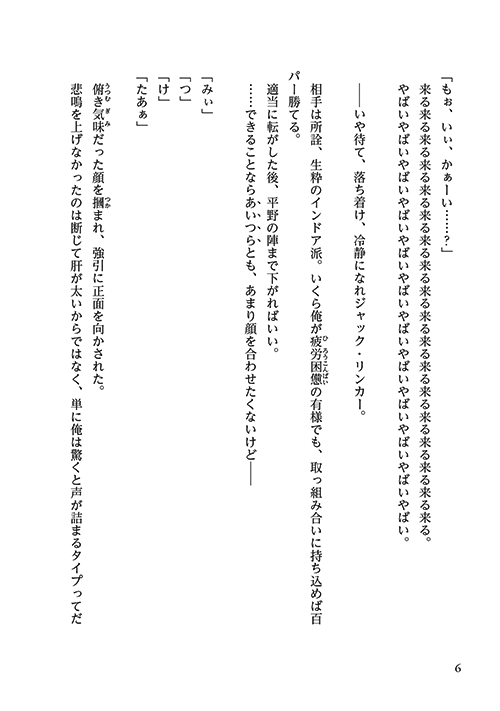 「もぉ、いぃ、かぁーい……？」
来る来る来る来る来る来る来る来る来る来る来る来る来る来る来る来る来る来る。
やばいやばいやばいやばいやばいやばいやばいやばいやばいやばいやばいやばい。
――いや待て、落ち着け、冷静になれジャック・リンカー。
相手は所詮、生粋のインドア派。いくら俺が疲労困憊の有様でも、取っ組み合いに持ち込めば百
パー勝てる。
適当に転がした後、平野の陣まで下がればいい。
……できることならあいつらとも、あまり顔を合わせたくないけど――
「みぃ」
「つ」
「け」
「たあぁ」
俯き気味だった顔を摑まれ、強引に正面を向かされた。
悲鳴を上げなかったのは断じて肝が太いからではなく、単に俺は驚くと声が詰まるタイプってだ
6